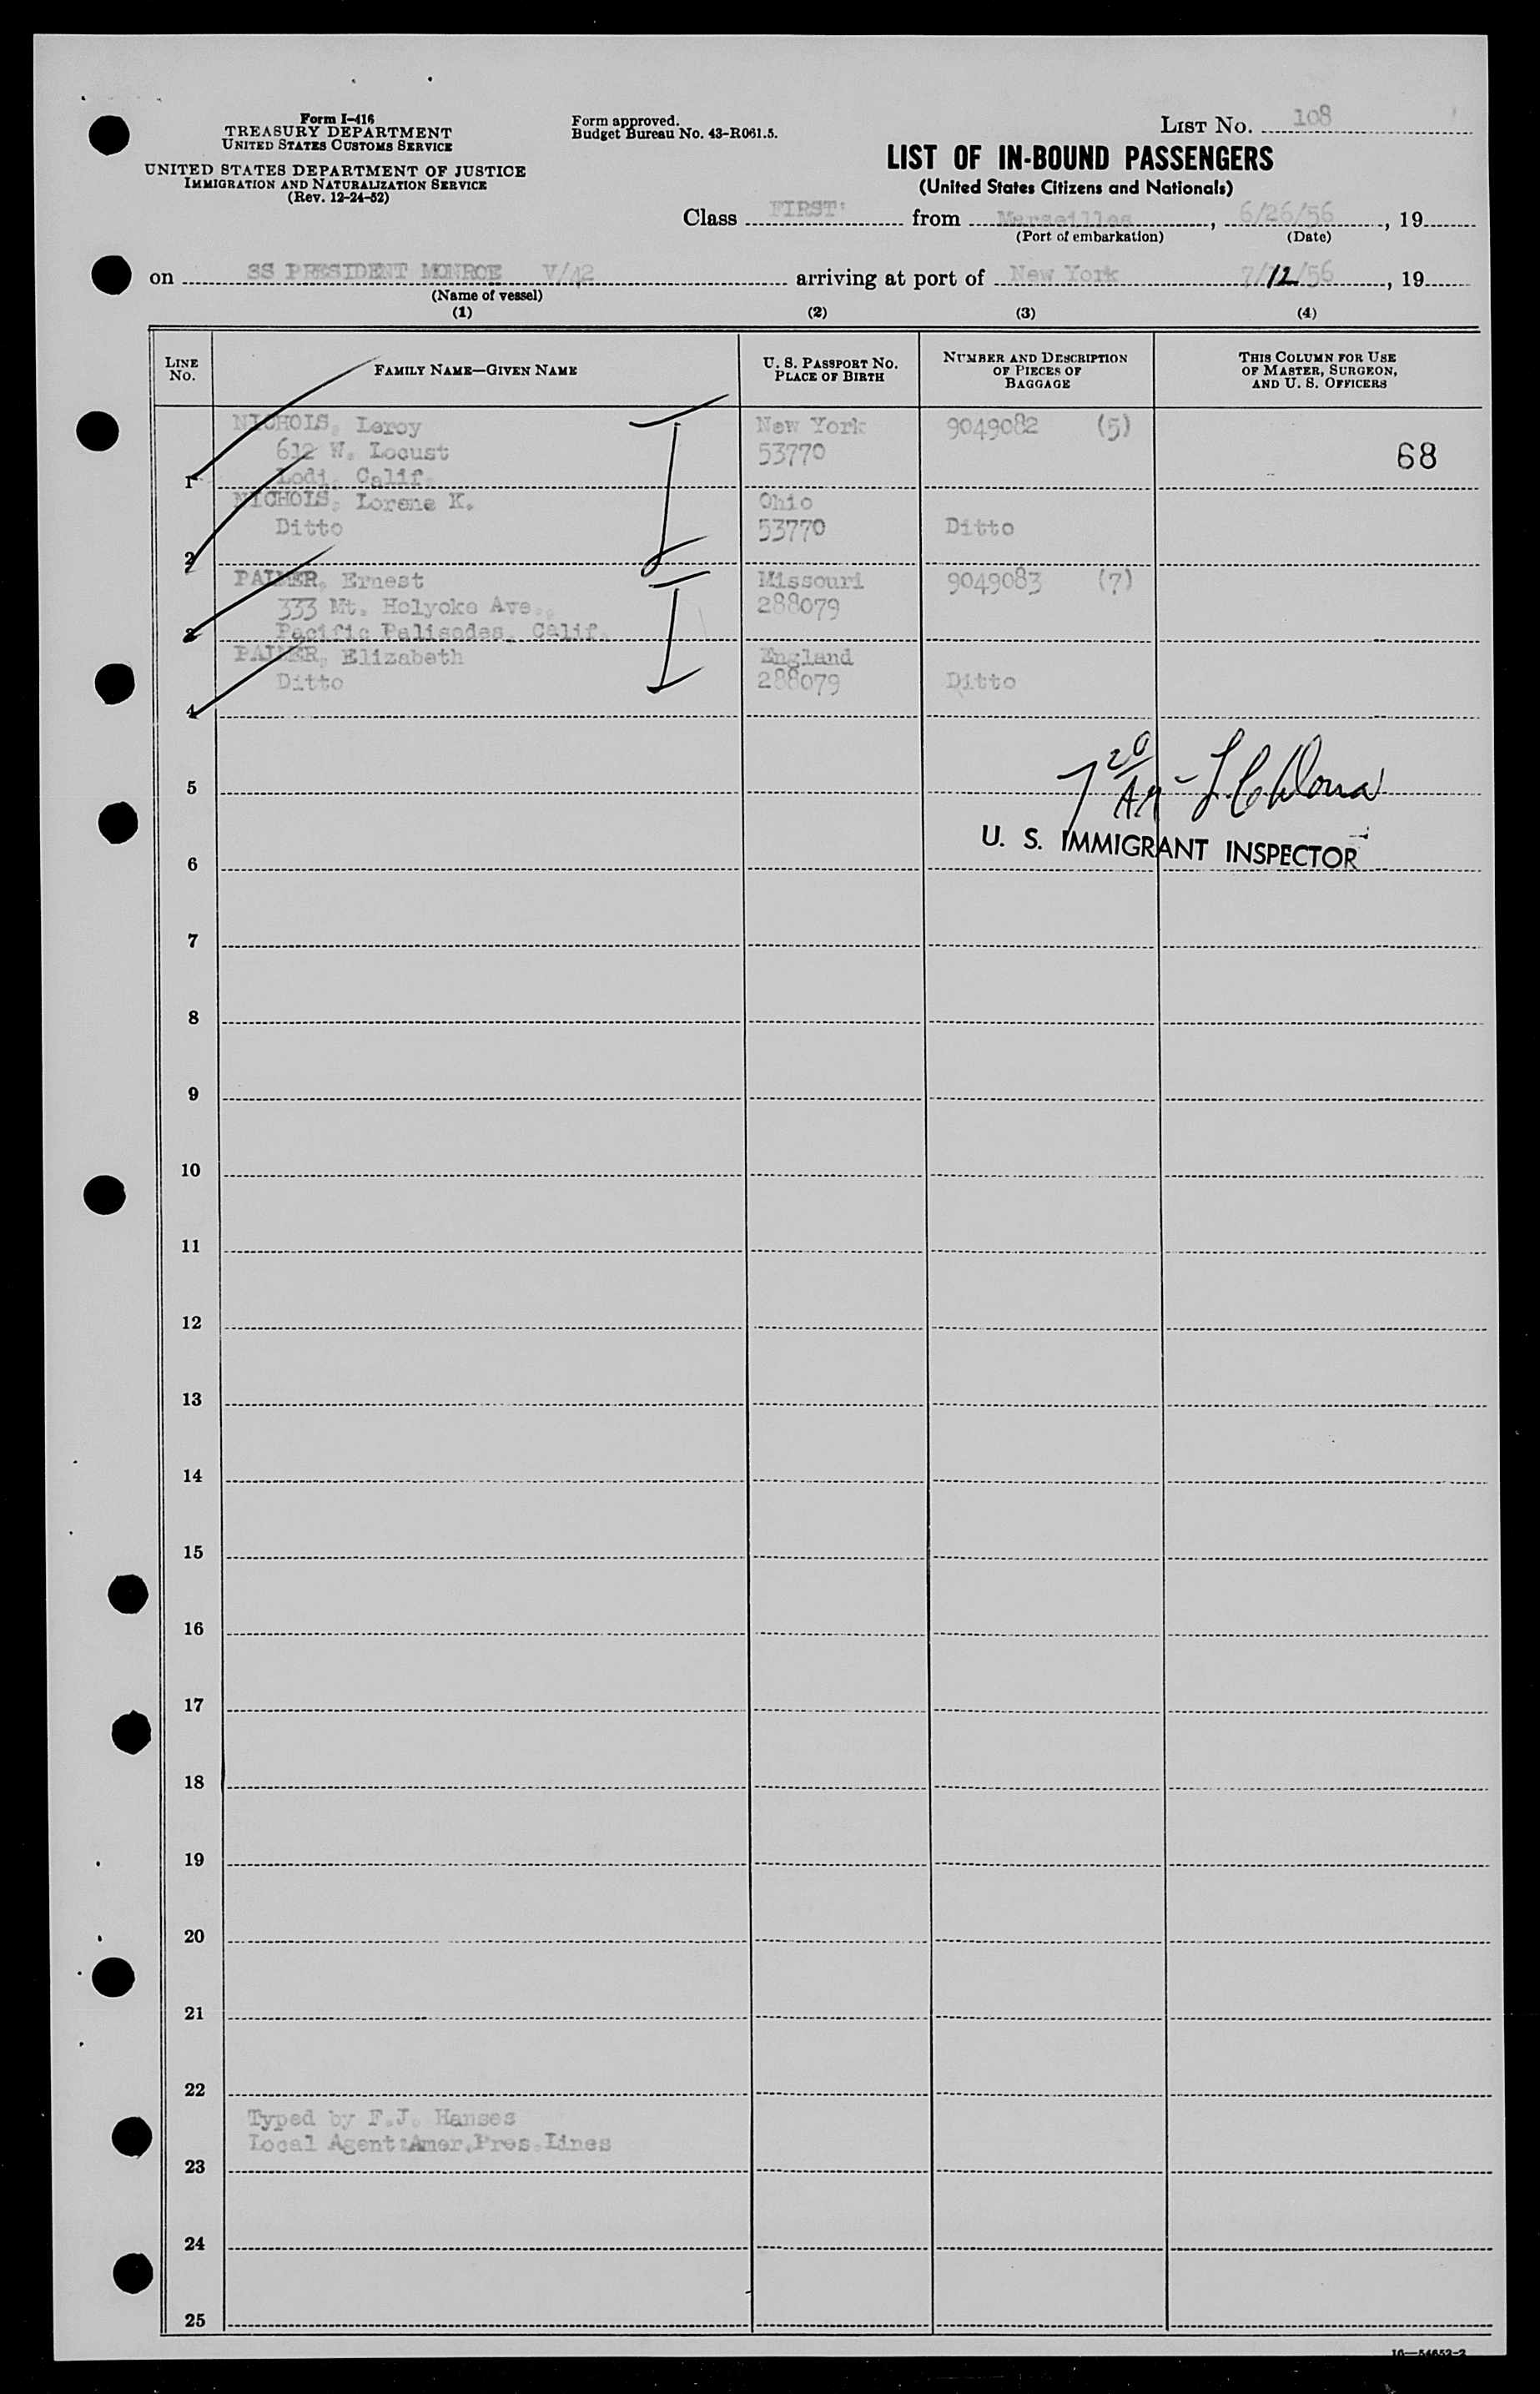 Form I-416
TREASURY DEPARTMENT
UNITED STATES CUSTOMS SERVICE
UNITED STATES DEPARTMENT OF JUSTICE
IMMIGRATION AND NATURALIZATION SERVICE
(Rev. 12-24-52)
Form approved.
Budget Bureau No. 43-R061.5.
LIST No. 108
LIST OF IN-BOUND PASSENGERS
(United States Citizens and Nationals)
Class FIRST from Marseilles, 6/26/56, 19
(Port of embarkation) (Date)
on SS PRESIDENT MONROE V/42 arriving at port of New York 7/12/56, 19
(Name of vessel)
(1) (2) (3) (4)
LINE NO. FAMILY NAME—GIVEN NAME U. S. PASSPORT NO. PLACE OF BIRTH NUMBER AND DESCRIPTION OF PIECES OF BAGGAGE THIS COLUMN FOR USE OF MASTER, SURGEON, AND U. S. OFFICERS
NICHOLS, Leroy New York 9049082 (5)
612 W. Locust 53770 68
1 Lodi, Calif.
NICHOLS, Lorene K. Ohio
Ditto 53770 Ditto
2
PALMER, Ernest Missouri 9049083 (7)
333 Mt. Holyoke Ave., 288079
3 Pacific Palisades, Calif.
PALMER, Elizabeth England
Ditto 288079 Ditto
4
7 20/AM
5
U. S. IMMIGRANT INSPECTOR
6
7
8
9
10
11
12
13
14
15
16
17
18
19
20
21
22
Typed by F.J. Hanses
Local Agent:Amer.Pres.Lines
23
24
25
16—54652-2